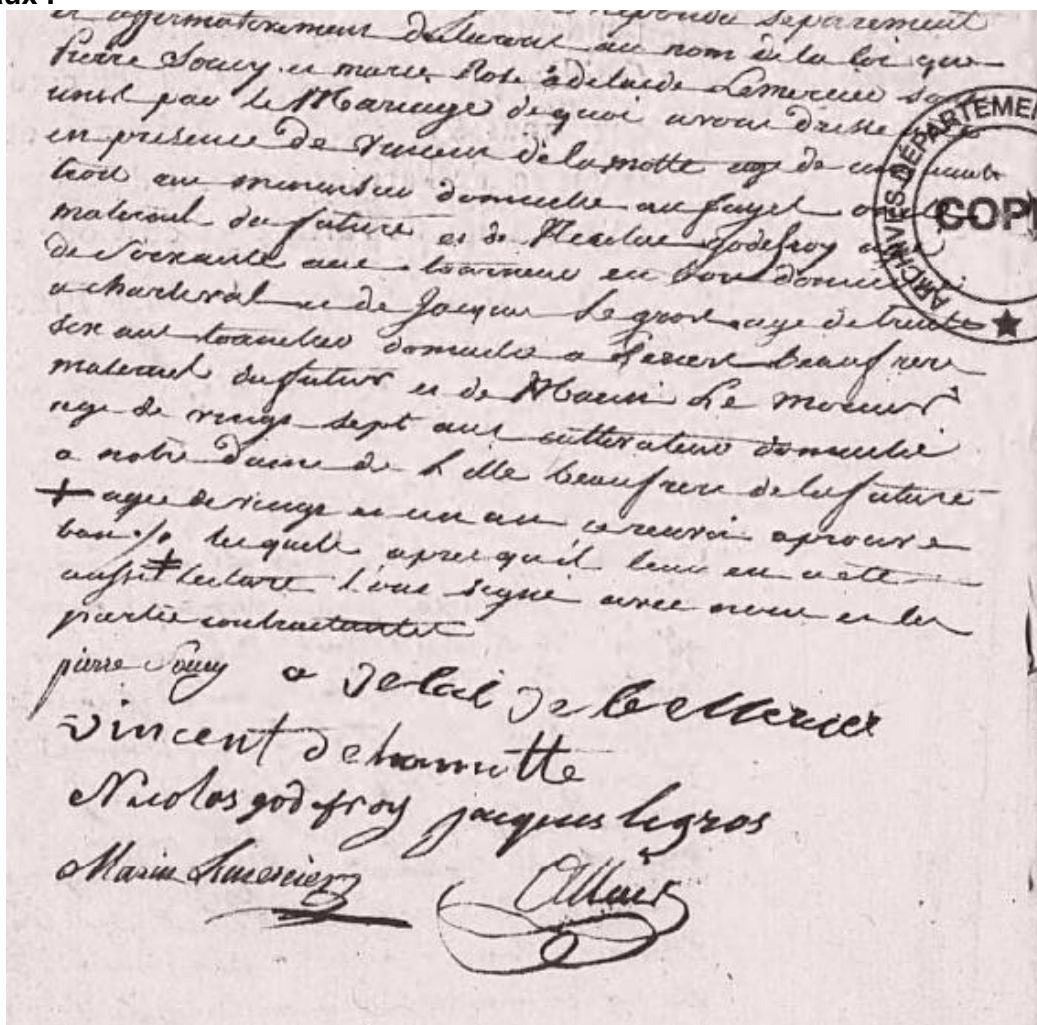 aux :
et affirmativement declarons au nom de la loi que
Pierre Soucy et marie Rose adelaide Lemercier sont
unis par le Mariage de quoi avons dresse acte
en presence de Vincent de la motte age de cinquante
trois ans menuisier domicilie au fayel oncle
maternel du futur et de Nicolas Godefroy age
de Soixante ans tourneur en bois domicilie
a charleval et de Jacques Legros age de trente
six ans domicilie a beaufrere
maternel du futur et de Marin Le mercier
age de vingt sept ans cultivateur domicilie
a notre Dame de L ille beaufrere de la future
+ agee de vingt et un an ce renvoi aprouve
bon ./. lesquels apres qu'il leur en a ete
aussi + lecture l'ont signé avec nous et les
partie contractantes
pierre Soucy a delaide le Mercier
vincent delamotte
Nicolas godefroy jacques legros
Marin Lemercier
ARCHIVES DÉPARTEMEN
COPI